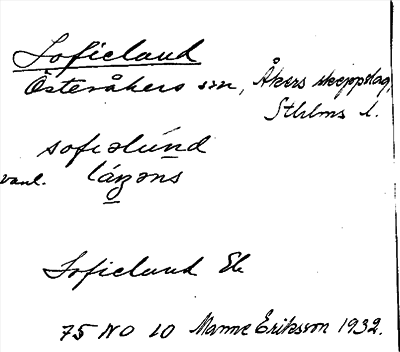 Sofielund
Österåkers sn, Åkers skeppslag,
Sthlms l.
sofiəlúnd
vanl. láŋəns
Sofielund Ek
75 NO 10 Manne Eriksson 1932.